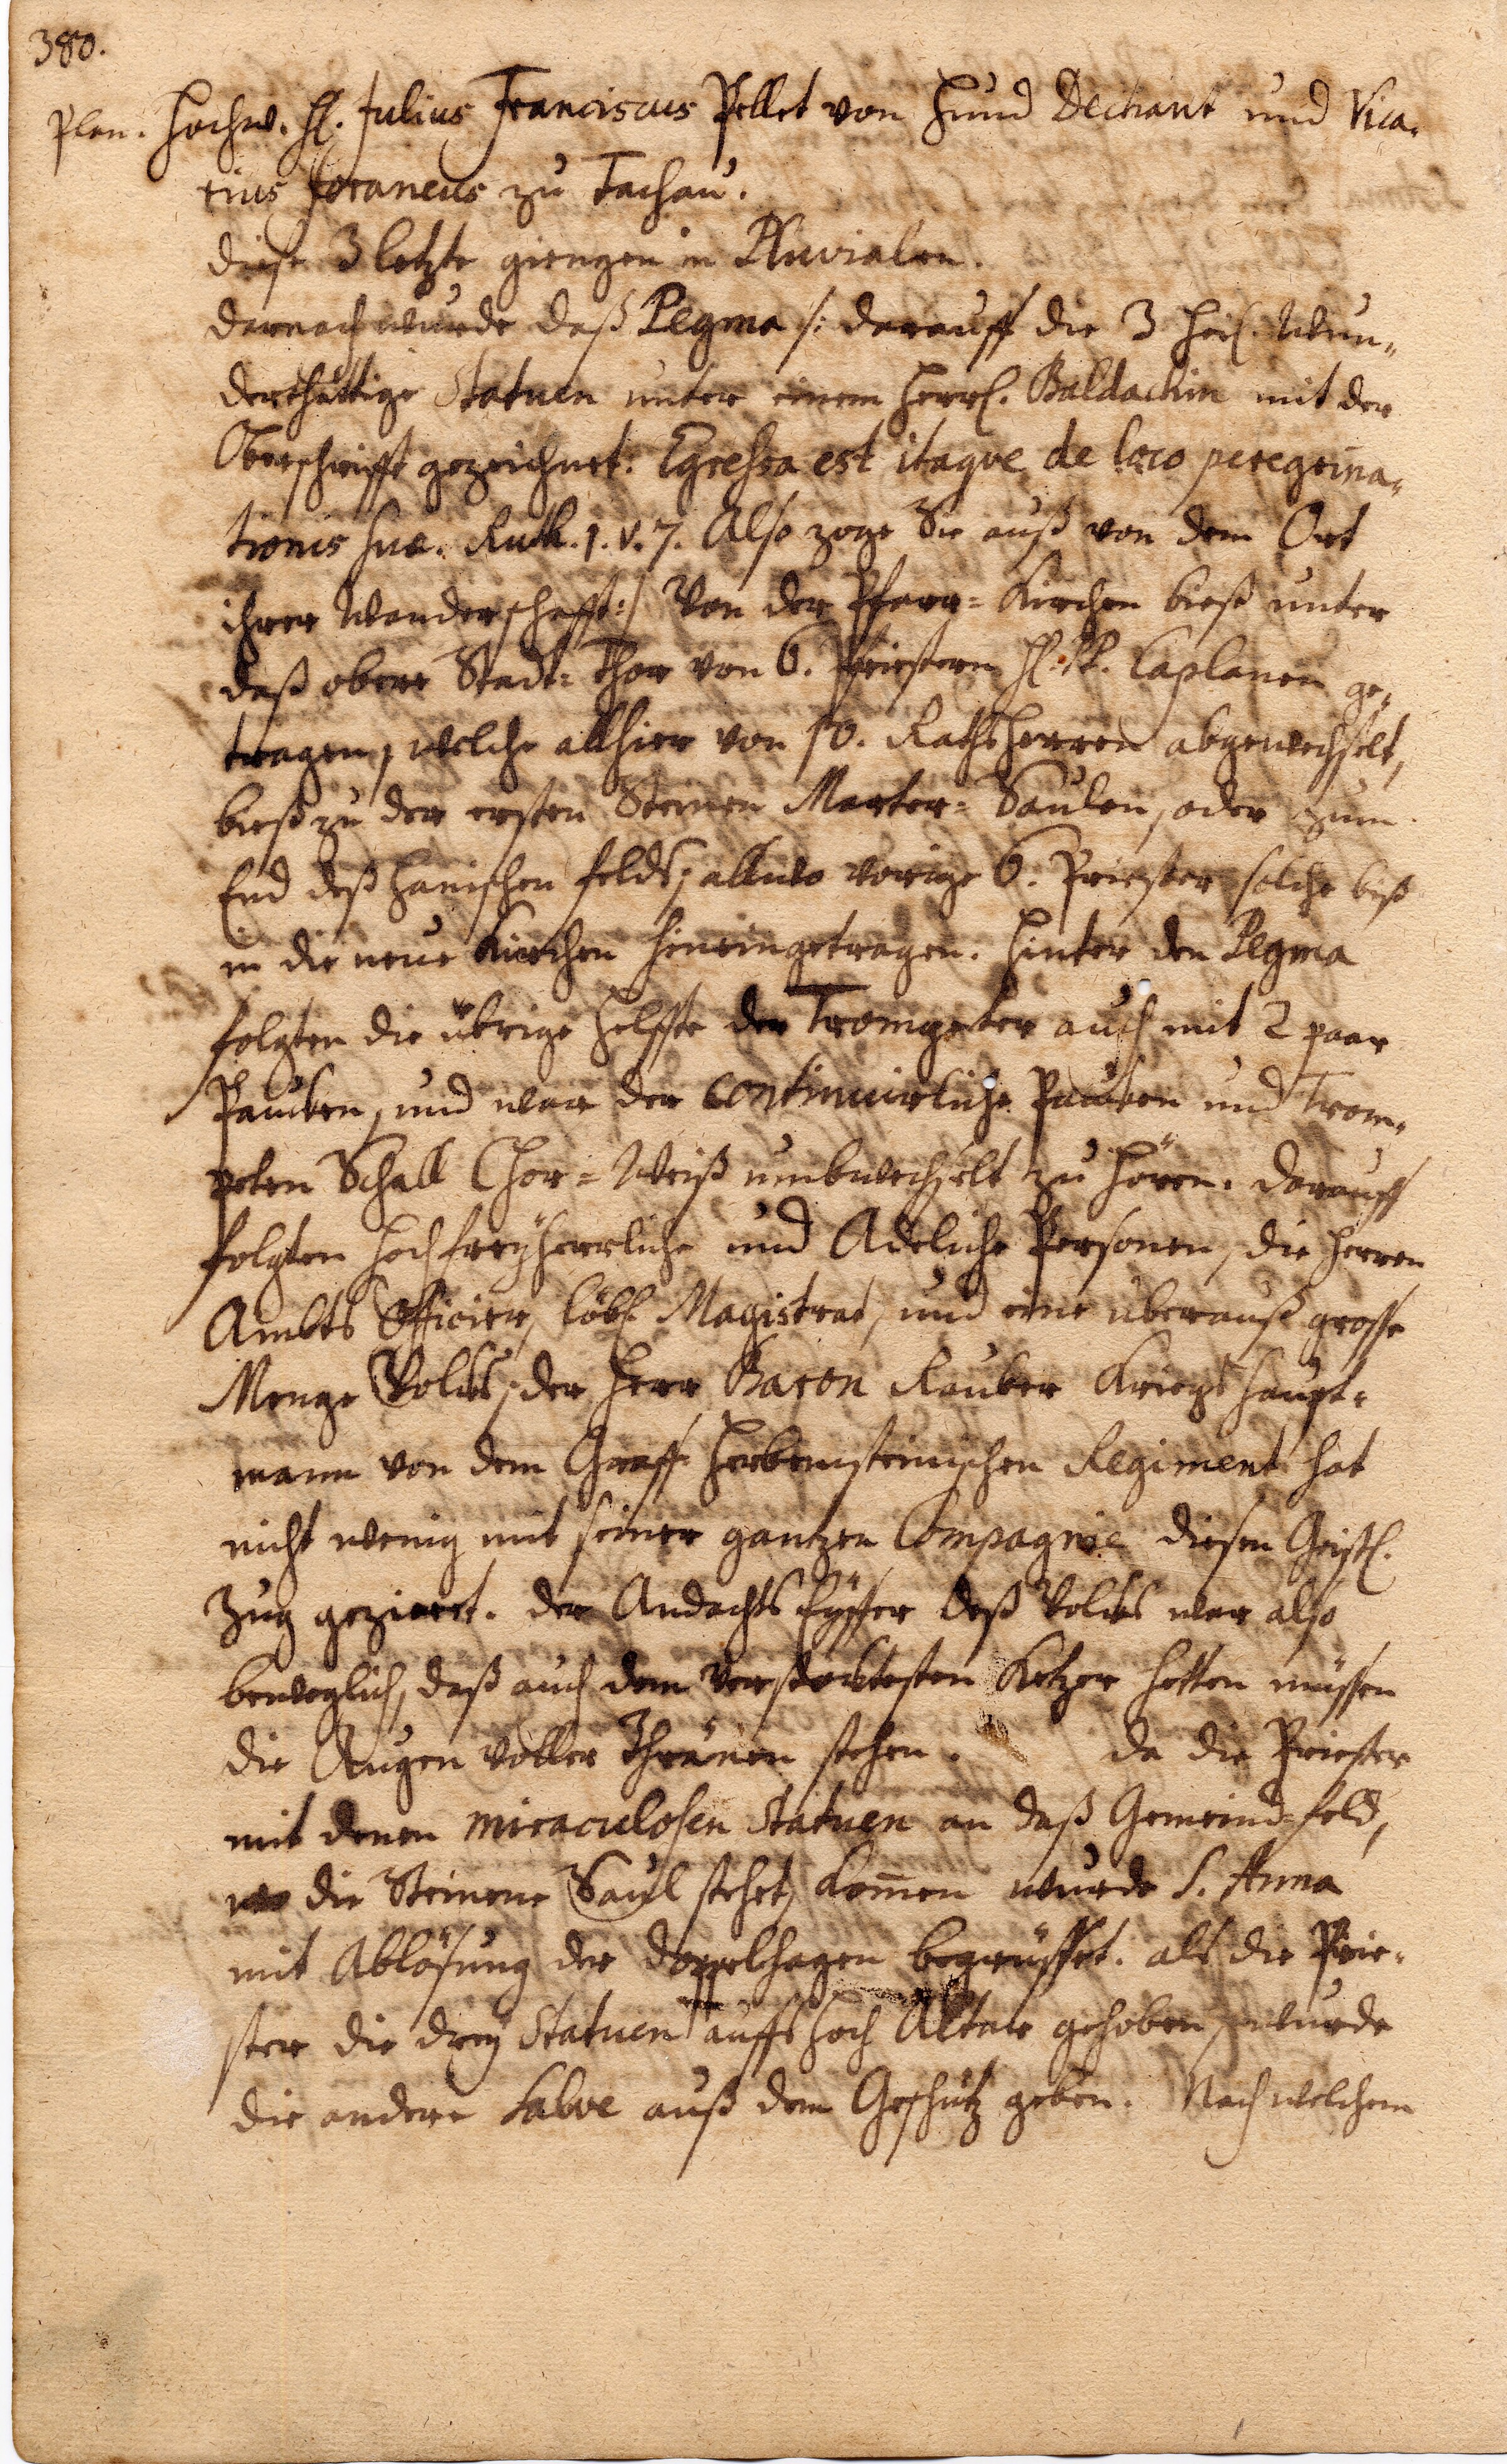 380.
Plen. Hochw. H. Julius Franciscus Pellet von Hund Dechant und Vica-
rius foraneus zu Tachau.
diese 3 letzte giengen in Pluvialen.
darnach wurde daß Pegma /: darauff die 3 heil. Wun-
derthättige Statuen unter einem herrl. Baldachin mit der
Oberschrifft gezeichnet: Egressa est itaqve de loco peregrina-
tionis suae. Ruth. 1. v. 7. Also zoge Sie auß von dem Ort
ihrer Wanderschafft :/ Von der Pfarr-Kirchen bieß unter
daß obere Stadt-Thor von 6. Priestern H. Caplanen ge-
tragen, welche allhier von 10. Rathsherren abgewechselt,
bieß zu der ersten Steinen Marter-Saulen, oder zum
End deß Hanischen felds, allwo vorige 6. Priester solche bieß
in die neue Kirchen hineingetragen. Hinter den Pegma
folgten die übrige helffte der Trompeter auch mit 2 paar
Paucken, und war der continuirliche Paucken und Trom-
peten Schall Chor-Weiß umbwechselt zu hören. darauff
folgten hochfreyherrliche und Adeliche Personen, die herren
Ambts Officier, löbl. Magistrat, und eine überauß grosse
Menge Volcks, der Herr Baron Rauber Kriegs haupt-
mann von dem Graff Herbersteinischen Regiment hat
nicht wenig mit seiner gantzen Compagnie diesen Geistl.
Zug geziert. der Andachts Eyffer deß Volcks war also
beweglich, daß auch dem verstocktesten Ketzer hetten müssen
die Augen voller Thränen stehen. da die Priester
mit denen miraculosen Statuen an daß Gemeind-feld,
wo die Steinene Saul stehet, kommen wurde S. Anna
mit Ablösung der doppelhagen begrüsset. als die Prie-
ster die drey Statuen auffs hoch Altar gehoben, wurde
die andere Salve auß dem Geschütz geben. Nach welchem